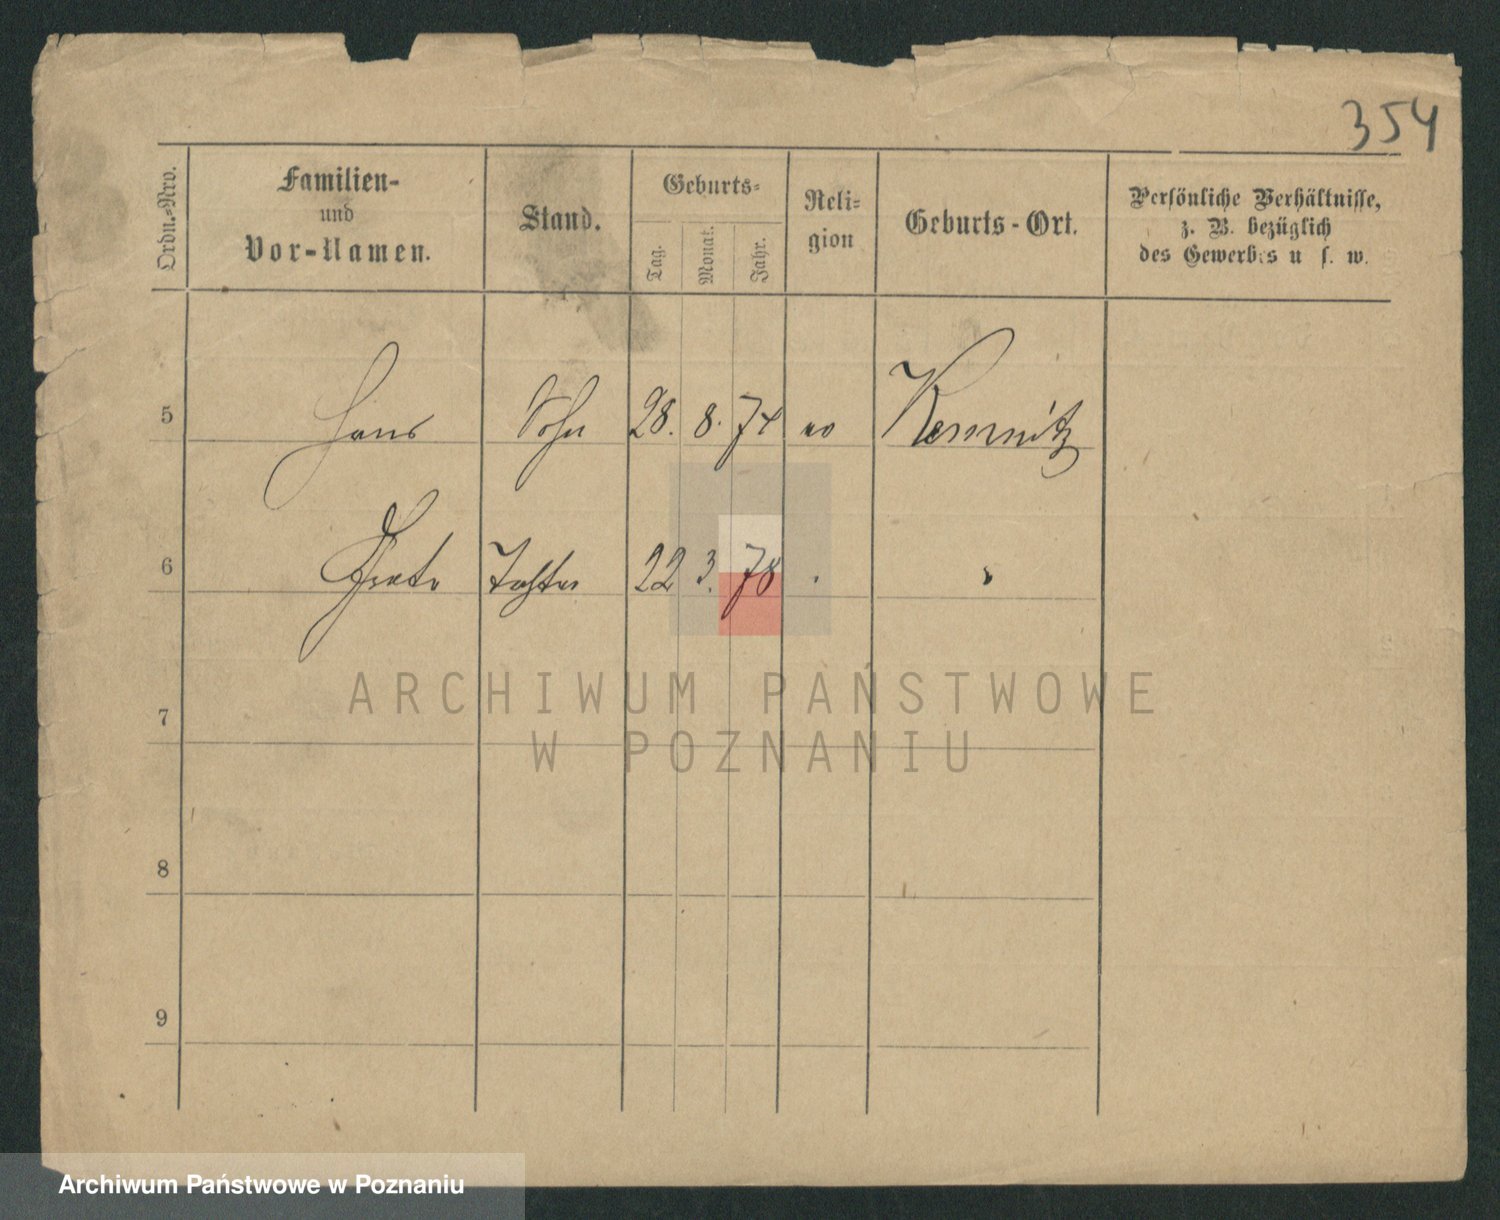 354
Ordn.-Nro.
Familien-
und
Vor-Namen.
Stand.
Geburts-
Tag.
Monat.
Jahr.
Reli-
gion
Geburts-Ort.
Persönliche Verhältnisse,
z. B. bezüglich
des Gewerbes u s. w.
5 Hans Sohn 28. 8. 74 ev Kemnitz
6 22 3. 78
7
8
9
ARCHIWUM PAŃSTWOWE
W POZNANIU
Archiwum Państwowe w Poznaniu